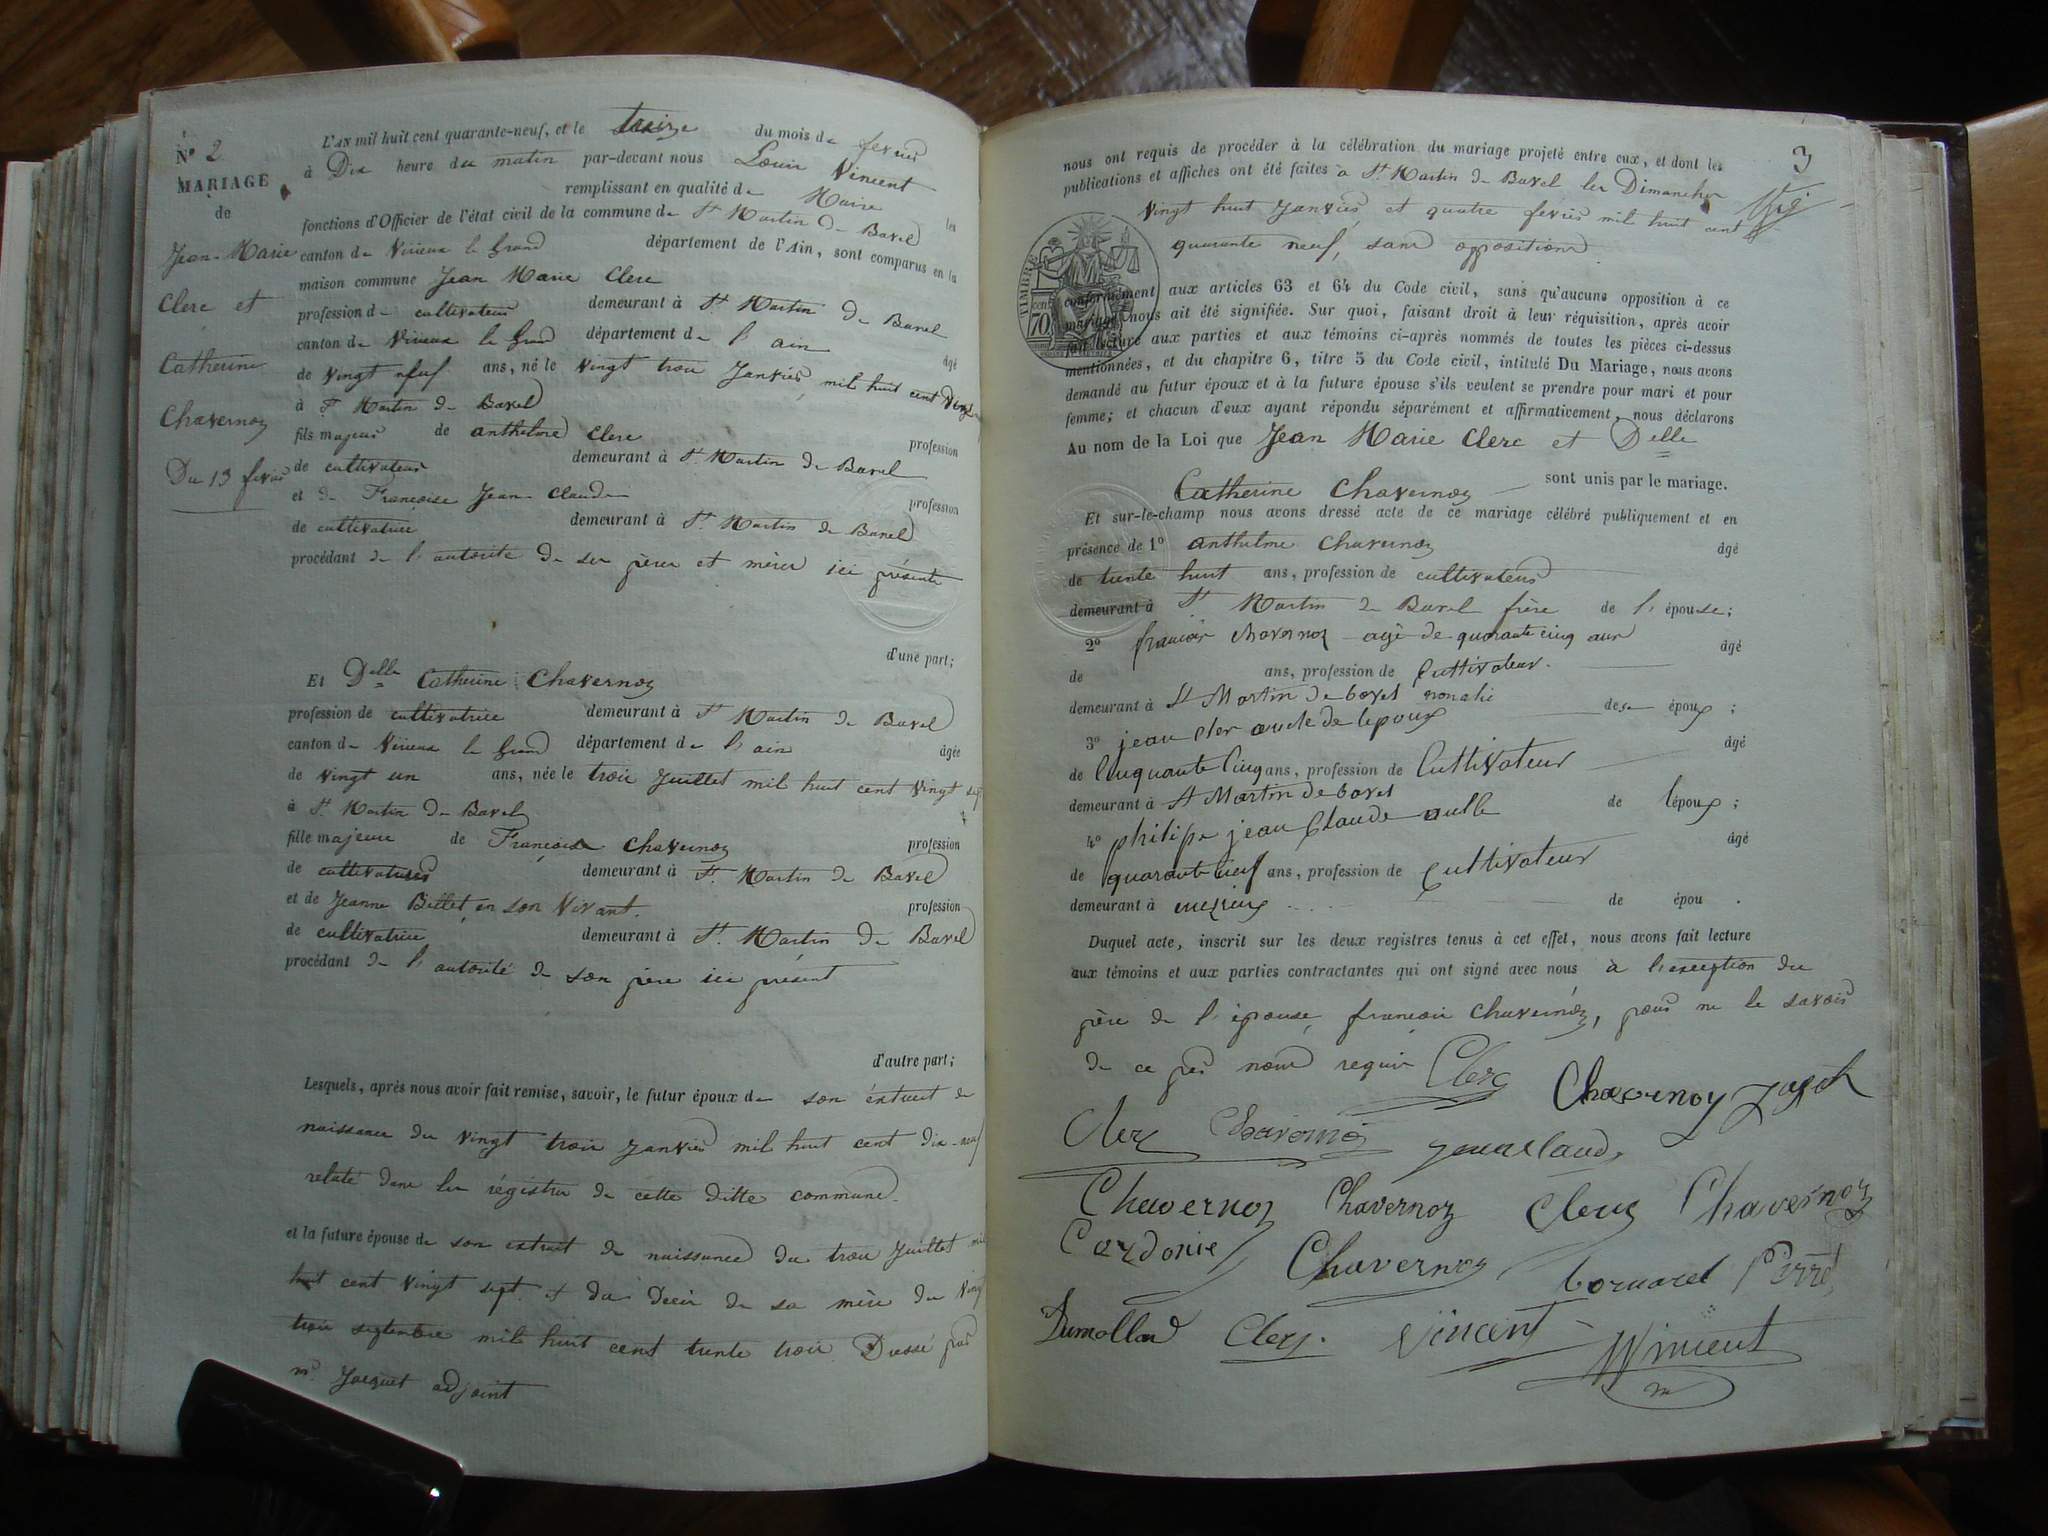 N° 2
MARIAGE
de
Jean-Marie
Clerc et
Catherine
Chavernoz
Du 13 fevrier
L'AN mil huit cent quarante-neuf, et le treize du mois de fevrier
à Dix heure du matin par-devant nous Louis Vincent
remplissant en qualité de Maire les
fonctions d'Officier de l'état civil de la commune de St Martin de Bavel
canton de Virieux le Grand département de l'Ain, sont comparus en la
maison commune Jean Marie Clerc
profession de cultivateur demeurant à St Martin de Bavel
canton de Virieux le Grand département de l'ain âgé
de Vingt neuf ans, né le vingt trois Janvier mil huit cent Vingt
à St Martin de Bavel
fils majeur de anthelme Clerc profession
de cultivateur demeurant à St Martin de Bavel
et de Françoise Jean-Claude profession
de cultivatrice demeurant à St Martin de Bavel
procédant de l'autorité de ses père et mère ici présents
d'une part;
Et Delle Catherine Chavernoz
profession de cultivatrice demeurant à St Martin de Bavel
canton de Virieux le Grand département de l'ain âgée
de vingt un ans, née le trois Juillet mil huit cent vingt sept
à St Martin de Bavel
fille majeure de François Chavernoz profession
de cultivateur demeurant à St Martin de Bavel
et de Jeanne Billet en son Vivant profession
de cultivatrice demeurant à St Martin de Bavel
procédant de l'autorité de son père ici présent
d'autre part;
Lesquels, après nous avoir fait remise, savoir, le futur époux de son extrait de
naissance du vingt trois Janvier mil huit cent dix-neuf
relaté dans les régistres de cette ditte commune.
et la future épouse de son extrait de naissance du trois Juillet mil
huit cent vingt sept et du Décès de sa mère du Vingt
trois septembre mil huit cent trente trois Dressé par
mr Jacquet adjoint
3
nous ont requis de procéder à la célébration du mariage projeté entre eux, et dont les
publications et affiches ont été faites à St Martin de Bavel les Dimanches
vingt huit Janvier et quatre fevrier mil huit cent
quarante neuf, sans opposition
TIMBRE
70 cent
conformément aux articles 63 et 64 du Code civil, sans qu'aucune opposition à ce
mariage nous ait été signifiée. Sur quoi, faisant droit à leur réquisition, après avoir
fait lecture aux parties et aux témoins ci-après nommés de toutes les pièces ci-dessus
mentionnées, et du chapitre 6, titre 5 du Code civil, intitulé Du Mariage, nous avons
demandé au futur époux et à la future épouse s'ils veulent se prendre pour mari et pour
femme; et chacun d'eux ayant répondu séparément et affirmativement, nous déclarons
Au nom de la Loi que Jean Marie Clerc et Delle
Catherine Chavernoz sont unis par le mariage.
Et sur-le-champ nous avons dressé acte de ce mariage célébré publiquement et en
présence de 1° anthelme Chavernoz âgé
de trente huit ans, profession de cultivateur
demeurant à St Martin de Bavel frère de l'épouse;
2° françois chavernoz agé de quarante cinq ans âgé
de ans, profession de Cultivateur.
demeurant à St Martin de bavel époux;
3° jean cler oncle de lepoux âgé
de Cinquante Cinq ans, profession de Cultivateur
demeurant à St Martin de bavel de lépoux;
4° philipe jean Claude âgé
de quarante neuf ans, profession de Cultivateur
demeurant à de épou .
Duquel acte, inscrit sur les deux registres tenus à cet effet, nous avons fait lecture
aux témoins et aux parties contractantes qui ont signé avec nous à l'exception du
père de l'épouse, françois Chavernoz, pour ne le savoir
de ce par nous requis Clerc Chavernoy Jagot
Clerc Chavernoz jean Claude
Chavernoz Chavernoz Clerc Chavernoz
Cardonie Chavernoz bornarel Perret
Dumollard Clerc. Vincent Vincent